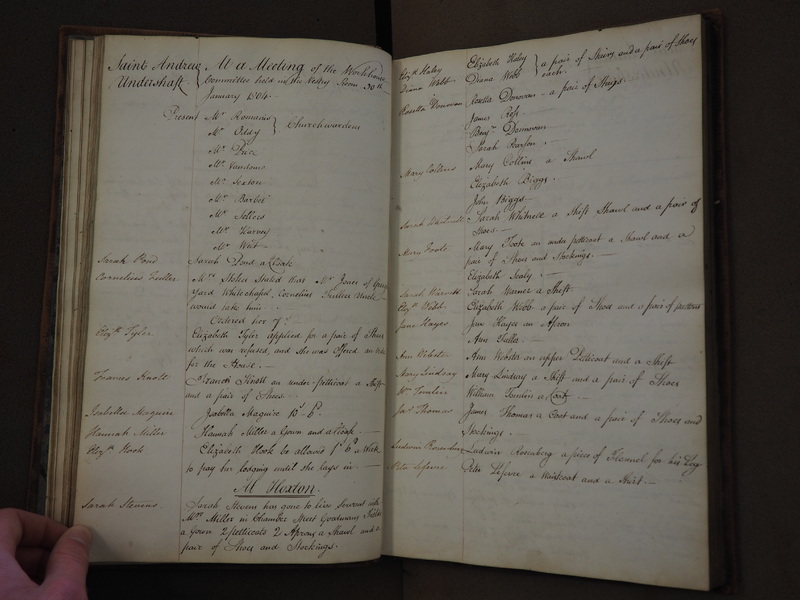 Saint Andrew Undershaft
At a Meeting of the Workhouse
Committee held in the Vestry Room 30th
January 1804
Present Mr Romanis
Mr Oddy
Churchwardens
Mr Price
Mr Vandome
Mr Sextone
Mr Barber
Mr Sellers
Mr Harvey
Mr West
Sarah Pond Sarah Pond a Cloak
Cornelius Mrs Stated that Mr Jones of
Yard Whitechapel, Cornelius
would take him
Ordered
Elizth Tyler Elizabeth Tyler applied for a pair of Shoes
which was refused, and she was offered an
for the House.
Frances Knott Frances Knott an under-petticoat a Shift
and a pair of Shoes
Isabella Maguire Isabella Maguire 10s 6d
Hannah Miller Hannah Miller a Gown and a Cloak
Elizth Hook Elizabeth Hook be allowed 1s 6d a Week
to pay her lodging until she lays in
At Hoxton
Sarah Stevens Sarah Stevens has gone to live Servant with
Mrs Miller in Chamber Street Goodmans Fields
a Gown 2 petticoats 2 Aprons a Shawl and a
pair of Shoes and Stockings.
Elizth Haley Elizabeth Haley
Diana Webb Diana Webb
a pair of and a pair of Shoes
each.
Rosetta Donovan Rosetta Donovan - a pair of
James
Benjn Donnovan
Sarah Pearson
Mary Collins Mary Collins a Shawl
Elizabeth Biggs
John Biggs
Sarah Whitnell Sarah Whitnell a Shift Shawl and a pair of
Shoes
Mary Foote Mary Foote an under petticoat a Shawl and a
pair of Shoes and Stockings.
Elizabeth Sealy.
Sarah Warner Sarah Warner a Shift
Elizth Webb Elizabeth Webb a pair of Shoes and a pair of pattens
Jane Hayes Jane Hayes an Apron
Ann
Ann Webster Ann Webster an upper Petticoat and a Shift
Mary Lindsay Mary Lindsay a Shift and a pair of Shoes
Wm Tomlin William Tomlin a Coat
Jas Thomas James Thomas a Coat and a pair of Shoes and
Stockings.
Ludwin Rosenberg Ludwin Rosenberg a piece of Flannel for his Leg
Peter Lefevre Peter Lefevre a Waistcoat and a Shirt